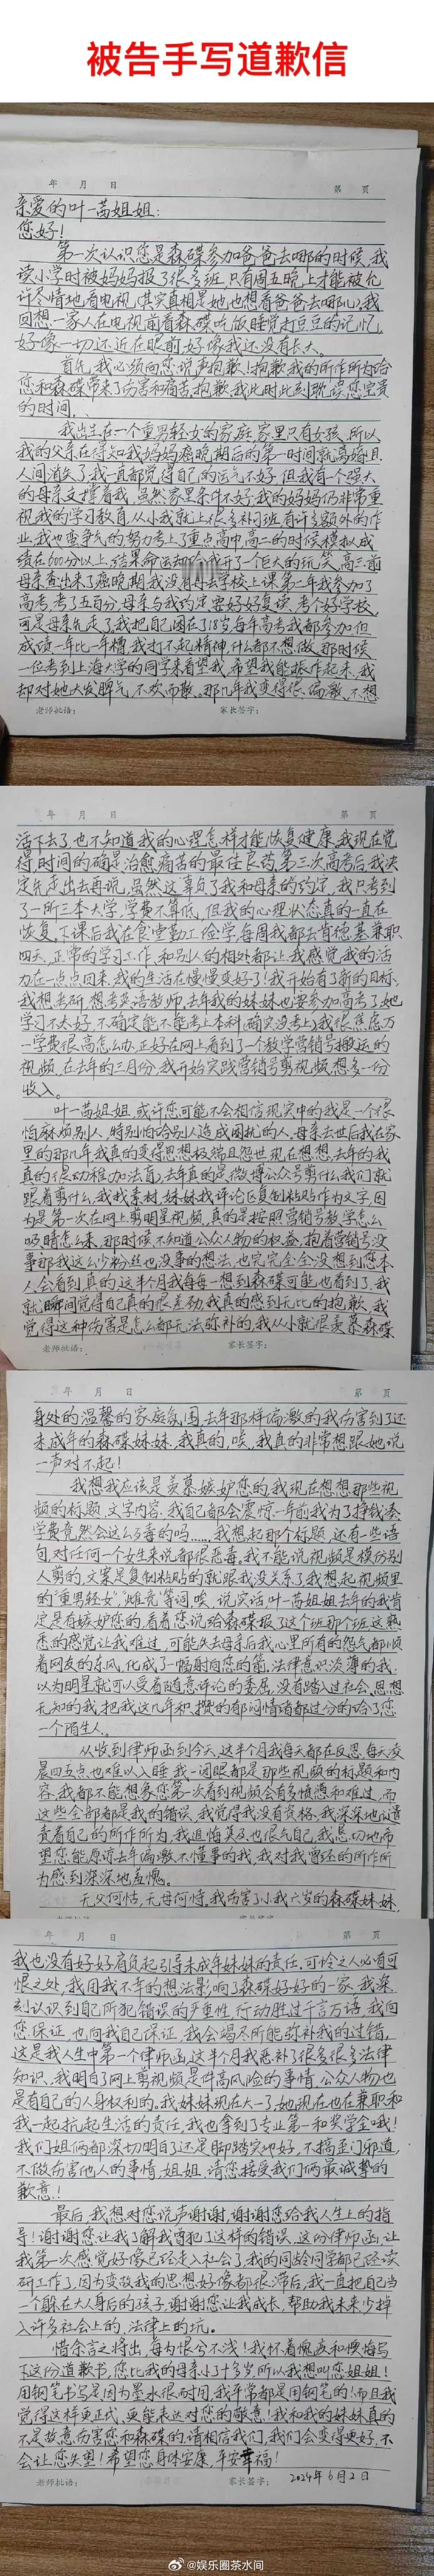 被告手写道歉信
年 月 日 第 页
亲爱的叶一茜姐姐：
您好！
第一次认识您是森碟参加爸爸去哪的时候，我
读小学时被妈妈报了很多班，只有周五晚上才能被允
许尽情地看电视（其实真相是她也想看爸爸去哪儿），我
回想一家人在电视前看森碟吃饭睡觉打豆豆的记忆，
好像一切还近在眼前，好像我还没有长大。
首先，我必须向您说声抱歉！抱歉我的所作所为给
您和森碟带来了伤害和痛苦，抱歉我此时此刻耽误您宝贵
的时间。
我出生在一个重男轻女的家庭，家里只有女孩，所以
我的父亲在得知我妈妈癌晚期后的第一时间就离婚且
人间消失了，我一直都觉得自己的运气不好，但我有一个强大
的母亲支撑着我，虽然家里条件不好，我的妈妈仍非常重
视我的学习教育，从小我就上很多补习班，有许多额外的作
业，我也蛮争气的努力考上了重点高中，高二的时候模拟成
绩在600分以上，结果命运却给我开了一个巨大的玩笑，高三前
母亲查出来了癌晚期，我没有再去学校上课，第二年我参加了
高考，考了五百分，母亲与我约定要好好复读，考个好学校，
可是母亲先走了，我把自己困在了18岁，每年高考我都参加，但
成绩一年比一年糟，我打不起精神，什么都不想做，那时候
一位考到上海大学的同学来看望我，希望我能振作起来，我
却对她大发脾气，不欢而散。那几年我变得很偏激，不想
老师批语： 家长签字：
年 月 日 第 页
活下去了，也不知道我的心理怎样才能恢复健康，我现在觉
得，时间的确是治愈痛苦的最佳良药，第三次高考后，我决
定先走出去再说，虽然这辜负了我和母亲的约定，我只考到
了一所三本大学，学费不算低，但我的心理状态真的一直在
恢复，下课后我在食堂勤工俭学，每周我都去肯德基兼职
四天，正常的学习工作，和别人的相处都让我感觉我的活
力在一点点回来，我的生活在慢慢变好了！我开始有了新的目标，
我想考研，想考英语教师，去年我的妹妹也要参加高考了，她
学习不太好，不确定能不能考上本科（确实没考上），我很焦虑万
一学费很高怎么办，正好在网上看到了一个教学营销号搬运的
视频，在去年的三月份，我开始实践营销号剪视频，想多一份
收入。
叶一茜姐姐，或许您可能不会相信，现实中的我是一个很
怕麻烦别人，特别怕给别人造成困扰的人，母亲去世后我在家
里的那几年我真的变得思想极端且怨世，现在想想，去年的我
真的很幼稚加法盲，去年真的是微博公众号剪什么我们就
跟着剪什么，我找素材，妹妹找评论区复制粘贴作为文字，因
为是第一次在网上剪明星视频，真的是按照营销号教学怎么
吸睛怎么来，那时候不知道公众人物的权益，抱着营销号没
事那我这么少粉丝也没事的想法，也完完全全没想到您本
人会看到，真的，这半个月我每每一想到森碟可能也看到了，我
就瞬间觉得自己真的很差劲，我真的感到无比的抱歉，我
觉得这种伤害是怎么都无法弥补的，我从小就很羡慕森碟
老师批语： 家长签字：
年 月 日 第 页
身处的温馨的家庭氛围，去年那样偏激的我伤害到了还
未成年的森碟妹妹，我真的，唉，我真的非常想跟她说
一声对不起！
我想我应该是羡慕嫉妒您的，我现在想想那些视
频的标题，文字内容，我自己都会震惊，一年前我为了挣钱凑
学费竟然会这么歹毒的吗……，我想起那个标题，还有一些语
句，对任何一个女生来说都很恶毒，我不能说视频是模仿别
人剪的，文案是复制粘贴的就跟我没关系了，我想起视频里
的“重男轻女”“雌竞”等词，唉，说实话叶一茜姐姐，去年的我肯
定是有嫉妒您的，看着您说给森碟报了这个班那个班，这熟
悉的感觉让我难过，可能失去母亲后我心里所有的怨气都顺
着网友的东风，化成了一幅射向您的箭，法律意识淡薄的我，
以为明星就可以受着随意评论的委屈，没有踏入过社会，思想
无知的我，把我这几年积攒的郁闷情绪都过分的给了您
一个陌生人。
从收到律师函到今天，这半个月我每天都在反思，每天凌
晨四五点也难以入睡，我一闭眼都是那些视频的标题和内
容，我都不能想象您第一次看到视频会有多愤懑和难过，而
这些全部都是我的错误，我觉得我没有资格，我深深地谴
责着自己的所作所为，我追悔莫及，也很气自己，我恳切地希
望您能原谅去年偏激不懂事的我，我对我曾经的所作所
为感到深深地羞愧。
无父何怙，无母何恃。我伤害了小我六岁的森碟妹妹，
年 月 日 第 页
我也没有好好肩负起引导未成年妹妹的责任，可怜之人必有可
恨之处，我因我不幸的想法影响了森碟好好的一家，我深
刻认识到自己所犯错误的严重性，行动胜过千言万语，我向
您保证，也向我自己保证，我会竭尽所能弥补我的过错，
这是我人生中第一个律师函，这半个月我恶补了很多很多法律
知识，我明白了网上剪视频是件高风险的事情，公众人物也
是有自己的人身权利的，我妹妹现在大一了，她现在也在兼职和
我一起抗起生活的责任，我也拿到了专业第一和奖学金哦！
我们姐俩都深切明白了还是脚踏实地好，不搞歪门邪道，
不做伤害他人的事情，姐姐，请您接受我们俩最诚挚的
歉意！
最后，我想对您说声谢谢，谢谢您给我人生上的指
导！谢谢您让我了解我曾犯了这样的错误，这份律师函，让
我第一次感觉好像已经走入社会了，我的同龄同学都已经读
研工作了，因为变故我的思想好像都很滞后，我一直把自己当
一个躲在大人身后的孩子，谢谢您让我成长，帮助我未来少掉
入许多社会上的，法律上的坑。
惜余言之将出，每为恨兮不浅！我怀着愧疚和懊悔写
下这份道歉书，您比我的母亲小了十多岁，所以我想叫您姐姐！
用钢笔书写是因为墨水很耐用，我平常都是用钢笔的！而且我
觉得这样更正式，更能表达对您的敬意！我和我的妹妹真的
不是故意伤害您和森碟的，请相信我们，我们会变得更好，不
会让您失望！希望您身体安康，平安幸福！
2024年6月2日
老师批语： 家长签字：
@娱乐圈茶水间